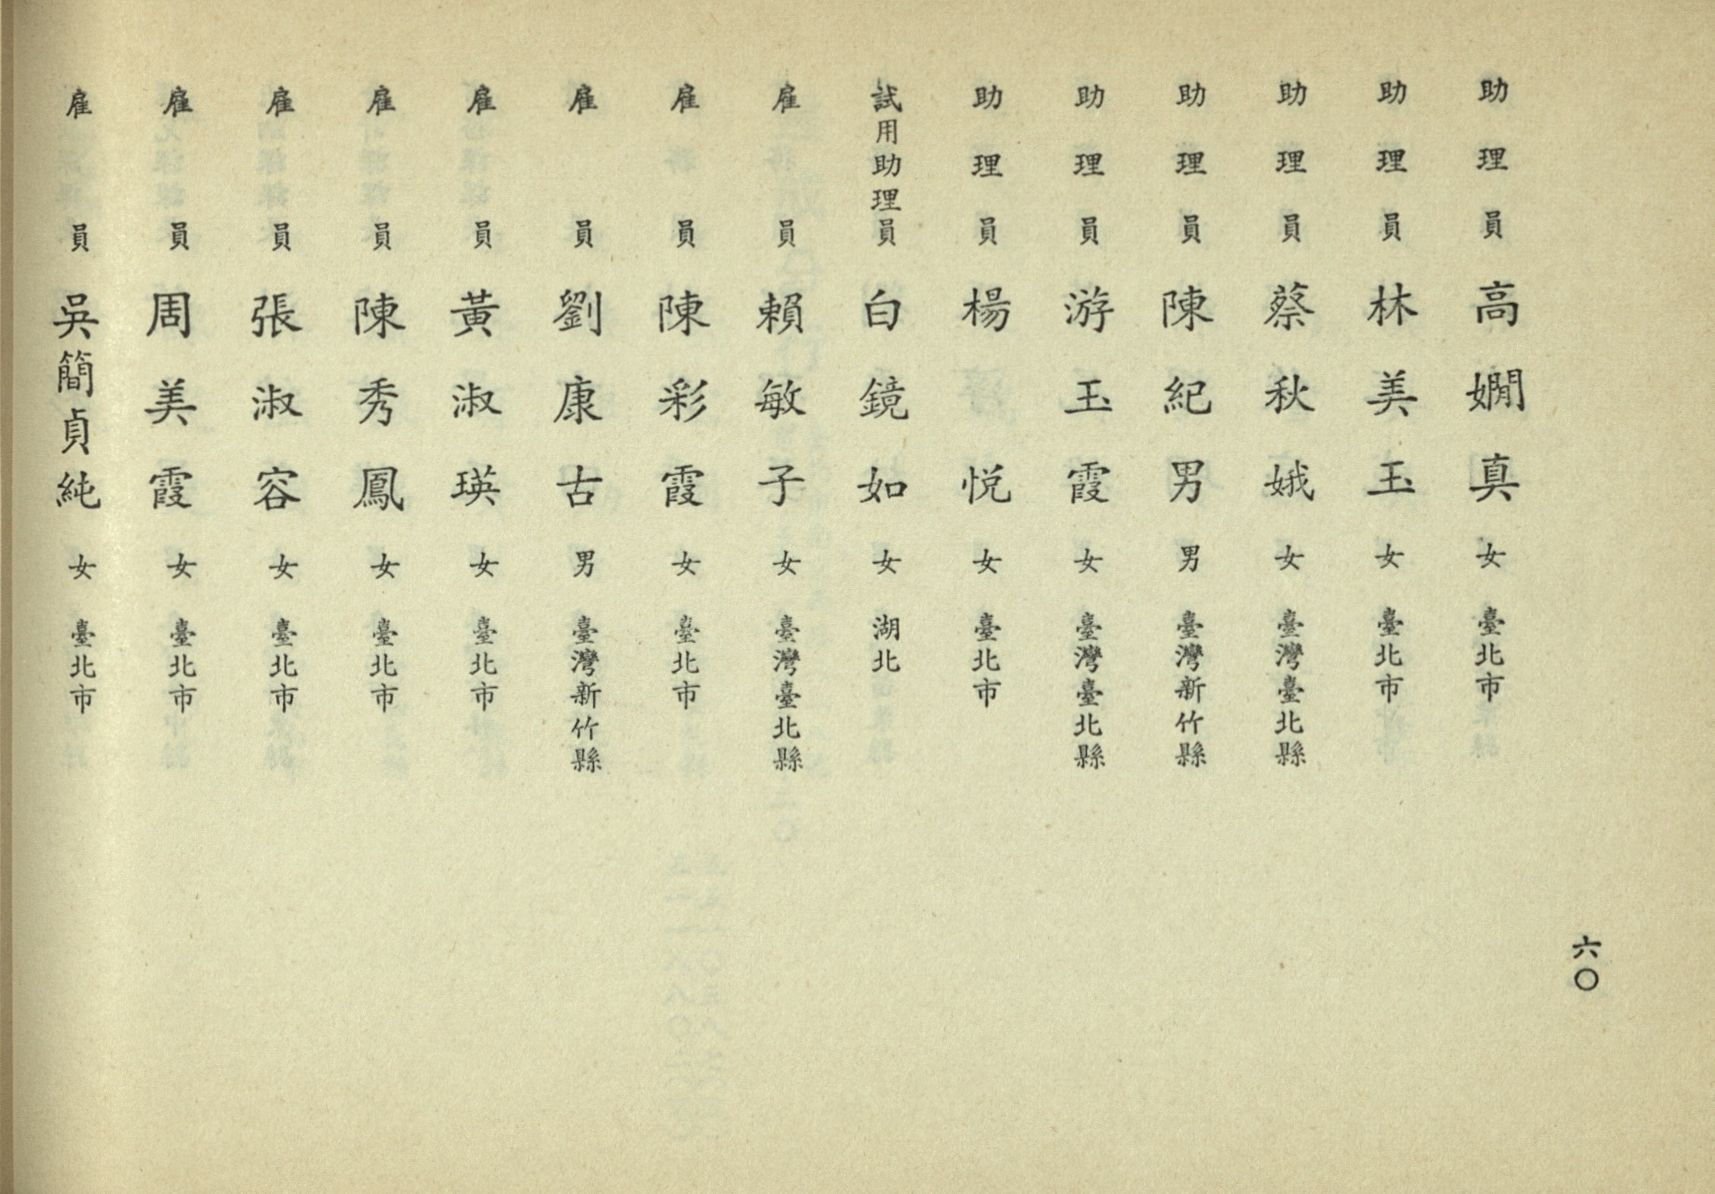 六〇
助理員 高嫺真 女 臺北市
助理員 林美玉 女 臺北市
助理員 蔡秋娥 女 臺灣臺北縣
助理員 陳紀男 男 臺灣新竹縣
助理員 游玉霞 女 臺灣臺北縣
助理員 楊悦 女 臺北市
試用助理員 白鏡如 女 湖北
雇員 賴敏子 女 臺灣臺北縣
雇員 陳彩霞 女 臺北市
雇員 劉康古 男 臺灣新竹縣
雇員 黃淑瑛 女 臺北市
雇員 陳秀鳳 女 臺北市
雇員 張淑容 女 臺北市
雇員 周美霞 女 臺北市
雇員 吳簡貞純 女 臺北市